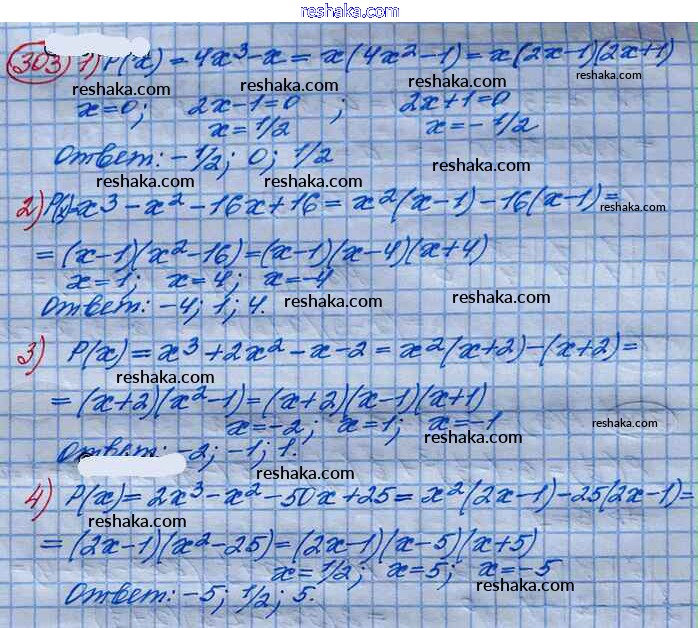 reshaka.com
303) 1) P(x) = 4x³ - x = x(4x² - 1) = x(2x-1)(2x+1)
reshaka.com
reshaka.com
reshaka.com
x=0; 2x-1=0 ; 2x+1=0
x=1/2 x=-1/2
Ответ: -1/2; 0; 1/2
reshaka.com
2) P(x)=x³ - x² - 16x + 16 = x²(x-1) - 16(x-1) =
reshaka.com
reshaka.com
= (x-1)(x²-16) = (x-1)(x-4)(x+4)
x=1; x=4; x=-4
Ответ: -4; 1; 4.
reshaka.com
reshaka.com
3) P(x) = x³ + 2x² - x - 2 = x²(x+2) - (x+2) =
reshaka.com
= (x+2)(x²-1) = (x+2)(x-1)(x+1)
x=-2; x=1; x=-1
reshaka.com
reshaka.com
Ответ: -2; -1; 1.
reshaka.com
4) P(x) = 2x³ - x² - 50x + 25 = x²(2x-1) - 25(2x-1) =
= (2x-1)(x²-25) = (2x-1)(x-5)(x+5)
x=1/2; x=5; x=-5
reshaka.com
Ответ: -5; 1/2; 5.
reshaka.com